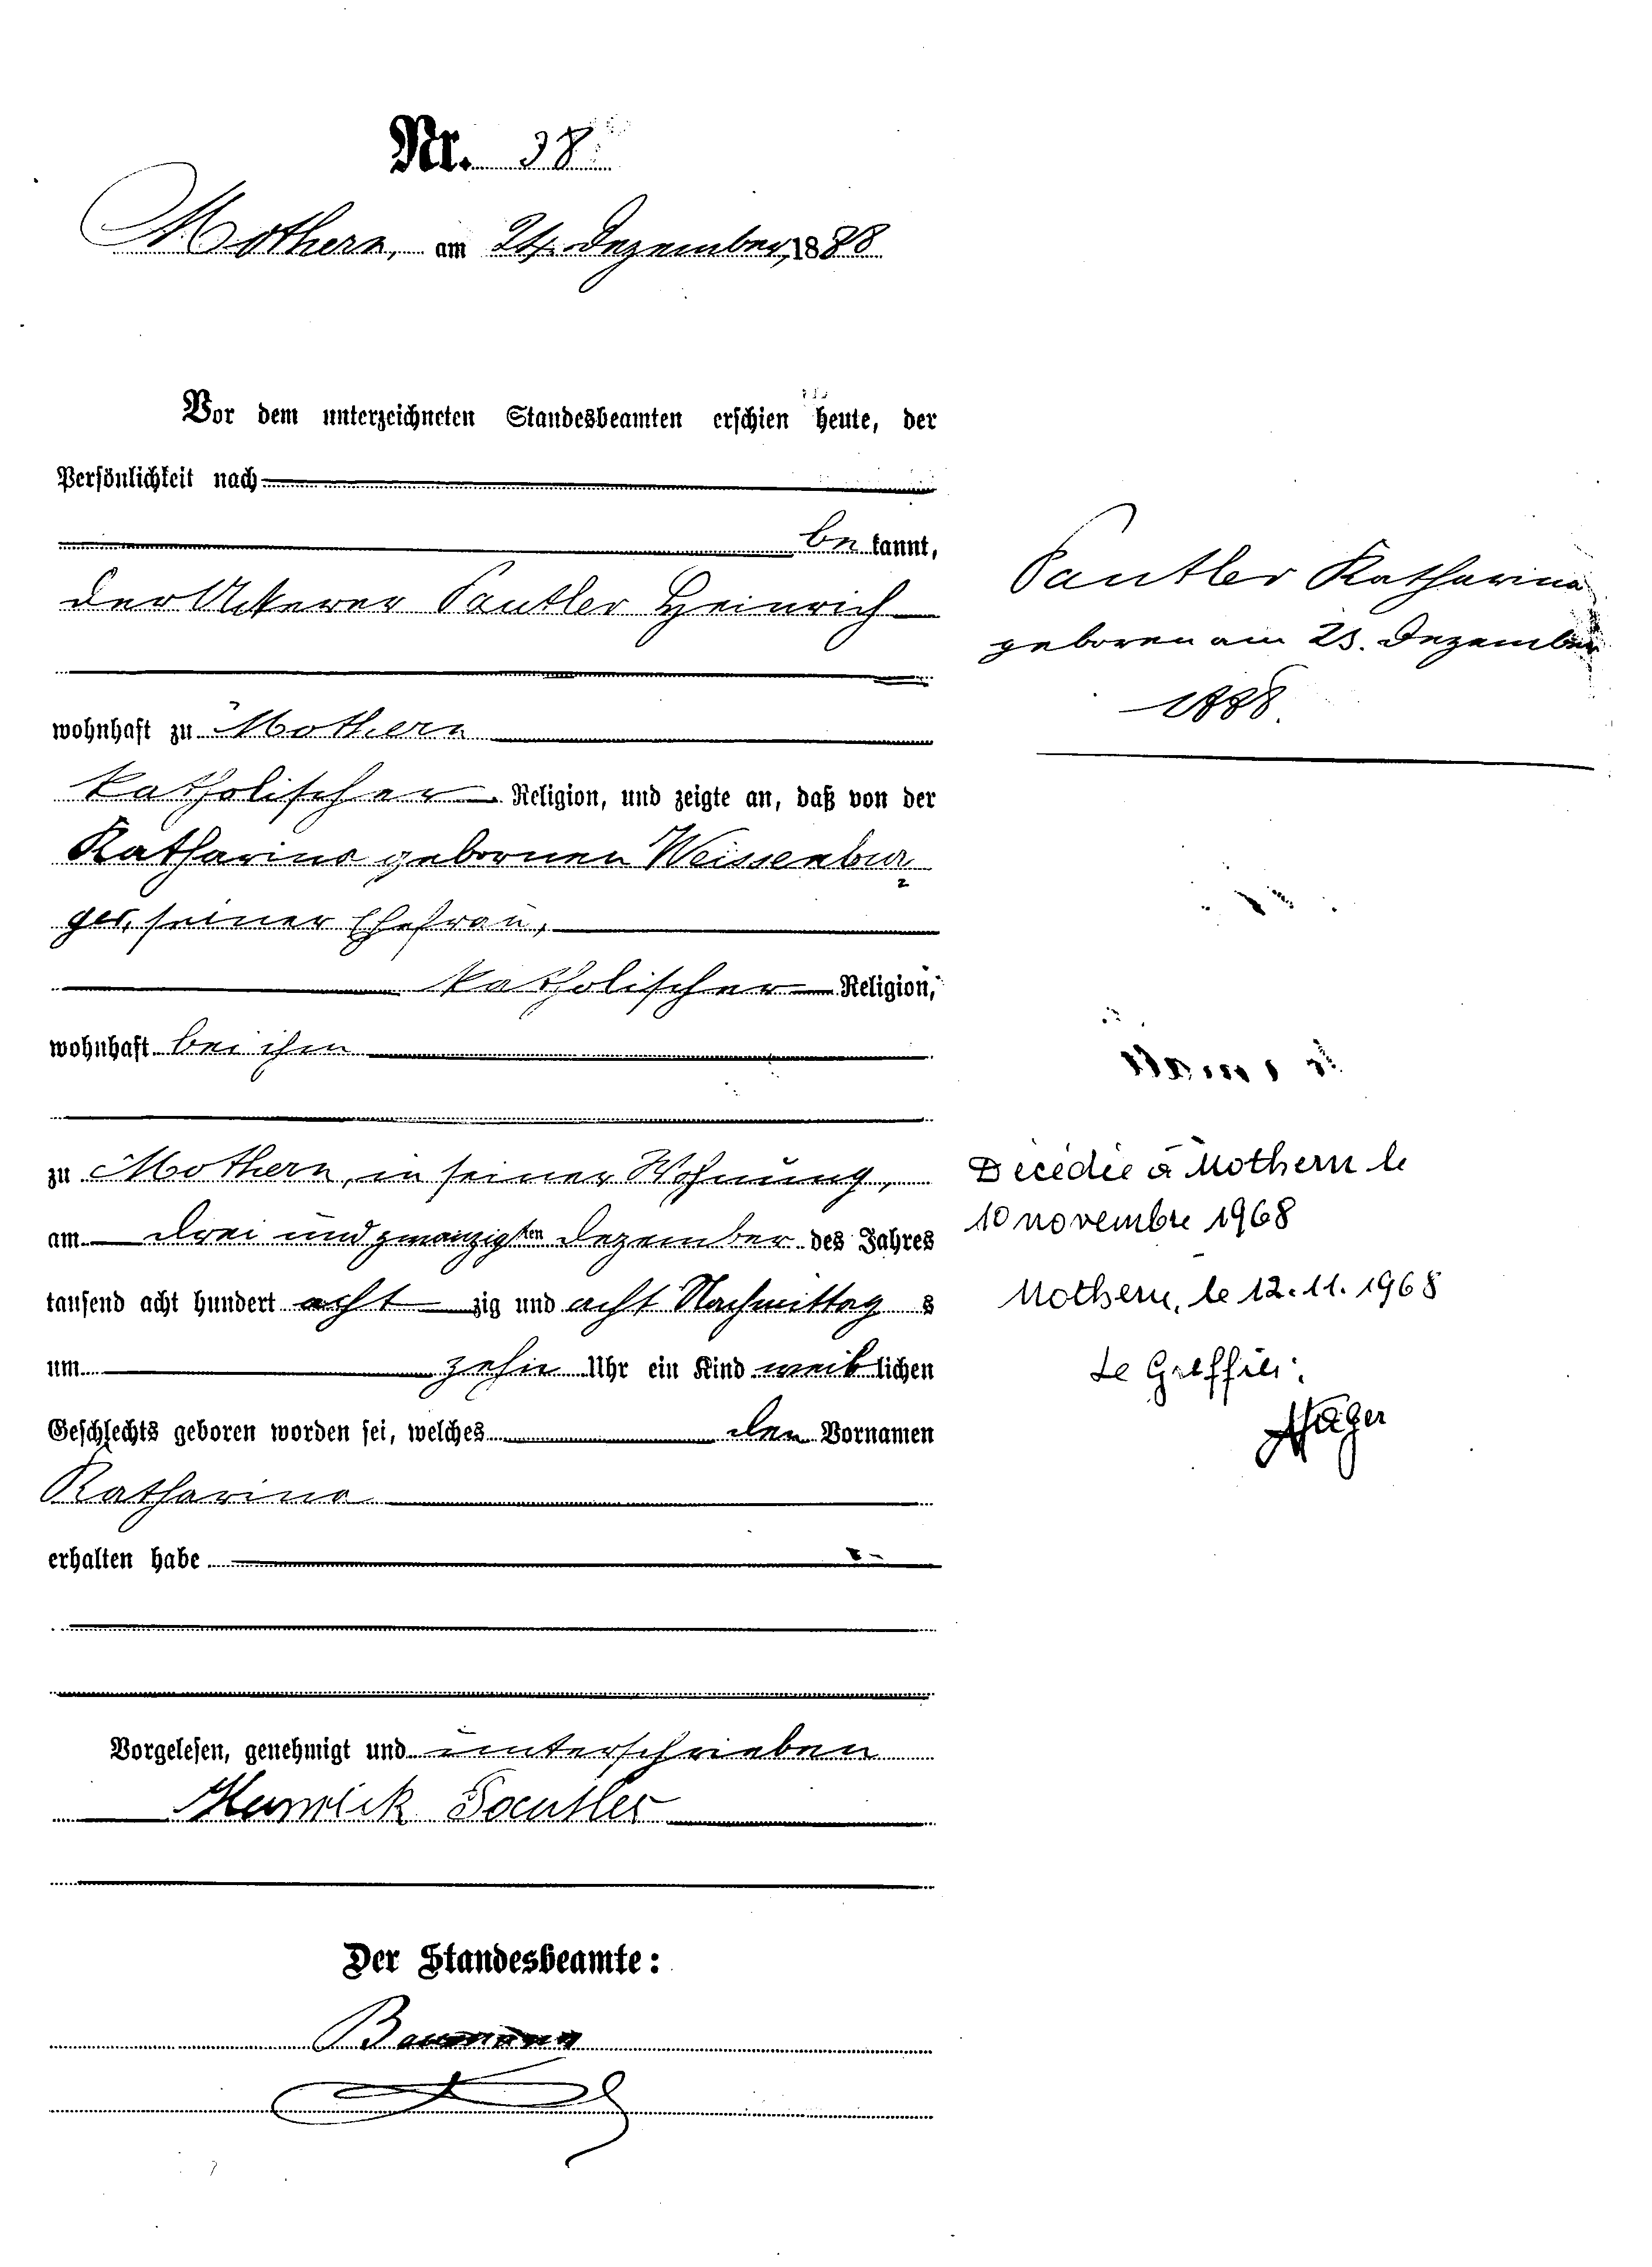 Nr. 38
Mothern, am 24. Dezember, 1888
Vor dem unterzeichneten Standesbeamten erschien heute, der
Persönlichkeit nach
be kannt,
der Ackerer Pautler Heinrich
wohnhaft zu Mothern
katholischer Religion, und zeigte an, daß von der
Katharina gebornen Weissenbur
ger, seiner Ehefrau,
katholischer Religion,
wohnhaft bei ihm
zu Mothern, in seiner Wohnung,
am drei und zwanzigsten Dezember des Jahres
tausend acht hundert acht zig und acht Nachmittag s
um zehn Uhr ein Kind weib lichen
Geschlechts geboren worden sei, welches den Vornamen
Katharina
erhalten habe
Vorgelesen, genehmigt und unterschrieben
Heinrich Pautler
Der Standesbeamte:
Baumann
Pautler Katharina
geboren am 23. Dezember
1888.
Décédée à Mothern le
10 novembre 1968
Mothern, le 12.11.1968
Le Greffier: